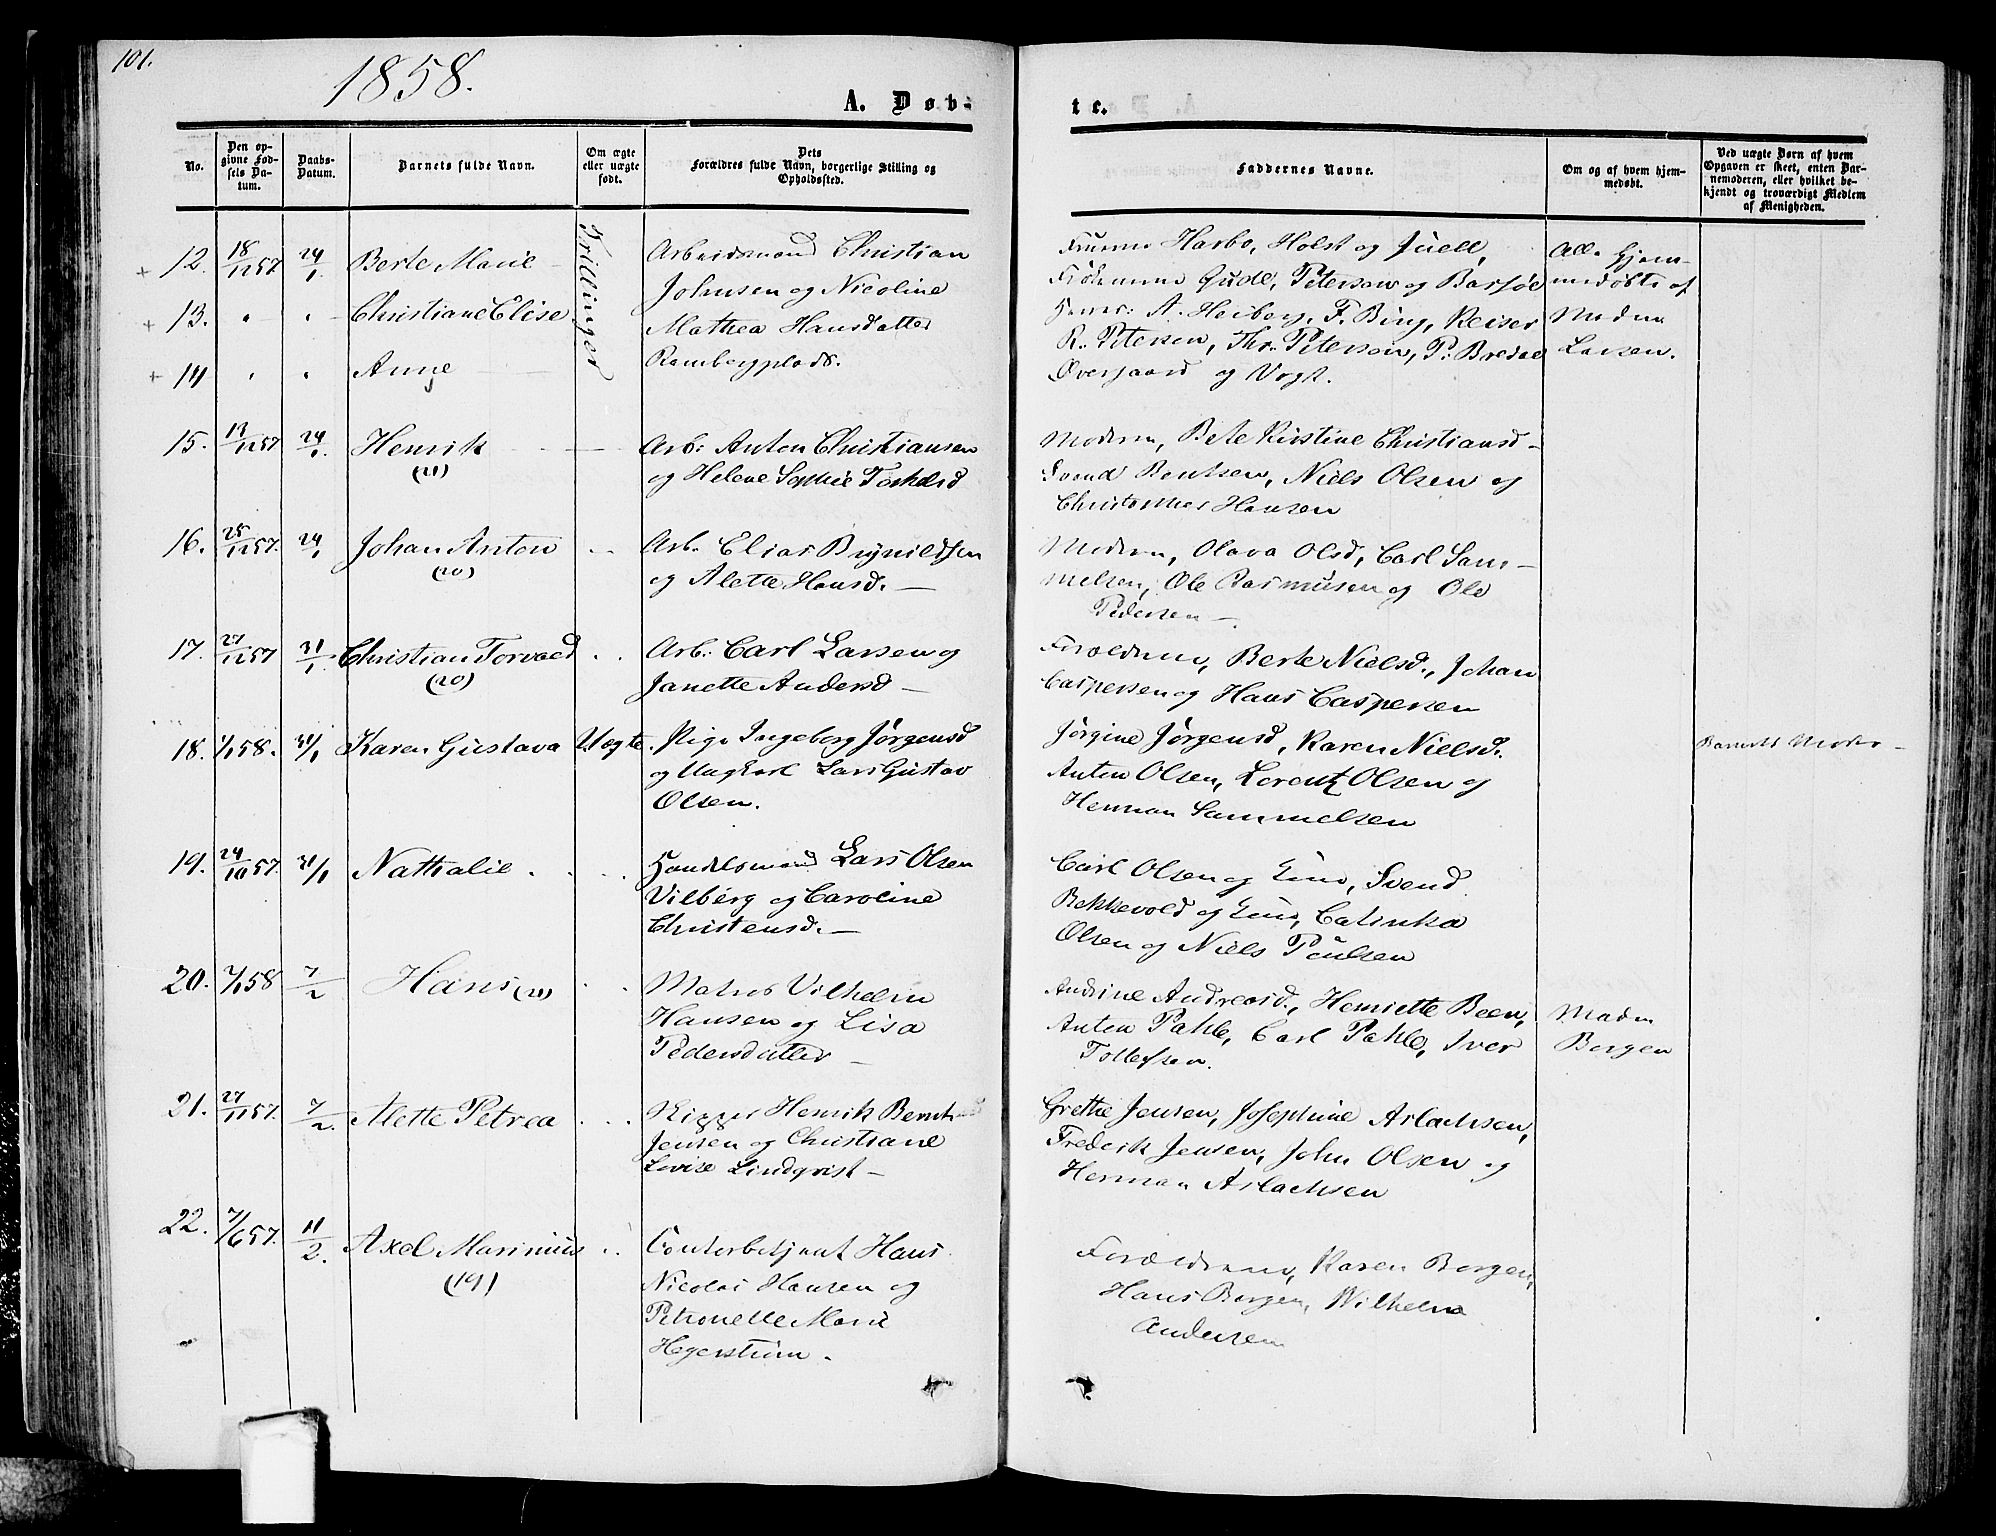 101.
1858.
A. Døb-
te.
No.
Den op-
givne Fød-
sels Da-
tum.
Daabs-
Datum.
Barnets fulde Navn.
Om ægte
eller uægte
født.
Dets
Forældres fulde Navn, borgerlige Stilling og
Opholdssted.
Faddernes Navne.
Om og af hvem hjem-
medøbt.
Ved uægte Børn af hvem
Opgaven er skeet, enten Bar-
nemoderen, eller hvilket be-
kjendt og troværdigt Medlem
af Menigheden.
12. 18/12 57 24/1 Berte Marie
Trillinger
Arbeidsmand Christian
Johnsen og Nicoline
Mathea Hansdatter
Rambergplads.
Fruerne Harbo, Holst og Juell,
Frøknerne Gude, Petersen og Barsøe
Herrer: A. Heiberg, F. Bing, Reiser
R. Petersen, Thr. Petersen, P. Bredal
Øvergaard og Vogt.
Alle hjem-
medøbte af
Madm
Larsen.
13. " " Christiane Elise
14 " " Anne
15. 19/12 57 24/1 Henrik
(21)
Arb: Anton Christiansen
og Helene Sophie Torkelsd
Modern, Bete Kirstine Christiansd
Svend Bentsen, Niels Olsen og
Christopher Hansen
16. 25/12 57. 24/1 Johan Anton
(20)
Arb. Elias Brynildsen
og Alette Hansd.
Modern, Olava Olsd, Carl Sam-
melsen, Ole Rasmusen og Ole
Pedersen
17. 27/12 57 31/1 Christian Torvald
(20)
Arb: Carl Larsen og
Janette Andersd
Foroldrene, Berte Nielsd., Johan
Caspersen og Hans Caspersen
18. 1/1 58. 31/1 Karen Gustava Uægte.
Pige Ingeborg Jørgensd
og Ungkarl Lars Gustav
Olsen.
Jørgine Jørgensd, Karen Nielsd.
Anton Olsen, Lorentz Olsen og
Herman Sammelsen
Barnets Moder
19. 24/10 57. 31/1 Nathalie
Handelsmand Lars Olsen
Vilberg og Caroline
Christensd.
Carl Olsen og , Svend
Bekkevold og , Catinka
Olsen og Niels Poulsen
20. 7/1 58 7/2 Hans (21)
Matros Vilhelm
Hansen og Lisa
Pedersdatter
Andrine Andreasd., Henriette Been,
Anton Pahle, Carl Pahle, Iver
Tollefsen.
Madm
Borgen
21. 27/11 57. 7/2. Alette Petrea
Rigger Henrik Bernh
Jensen og Christiane
Lovise Lindqvist
Grethe Jensen, Josephine Aslachsen,
Frederik Jensen, John Olsen og
Herman Aslachsen
22. 7/6 57. 11/2. Axel Marinius
(19)
Contorbetjent Hans
Nicolai Hansen og
Petronelle Marie
Hegerstrøm.
Forældrene, Karen Borgen,
Hans Borgen, Wilhelm
Andersen